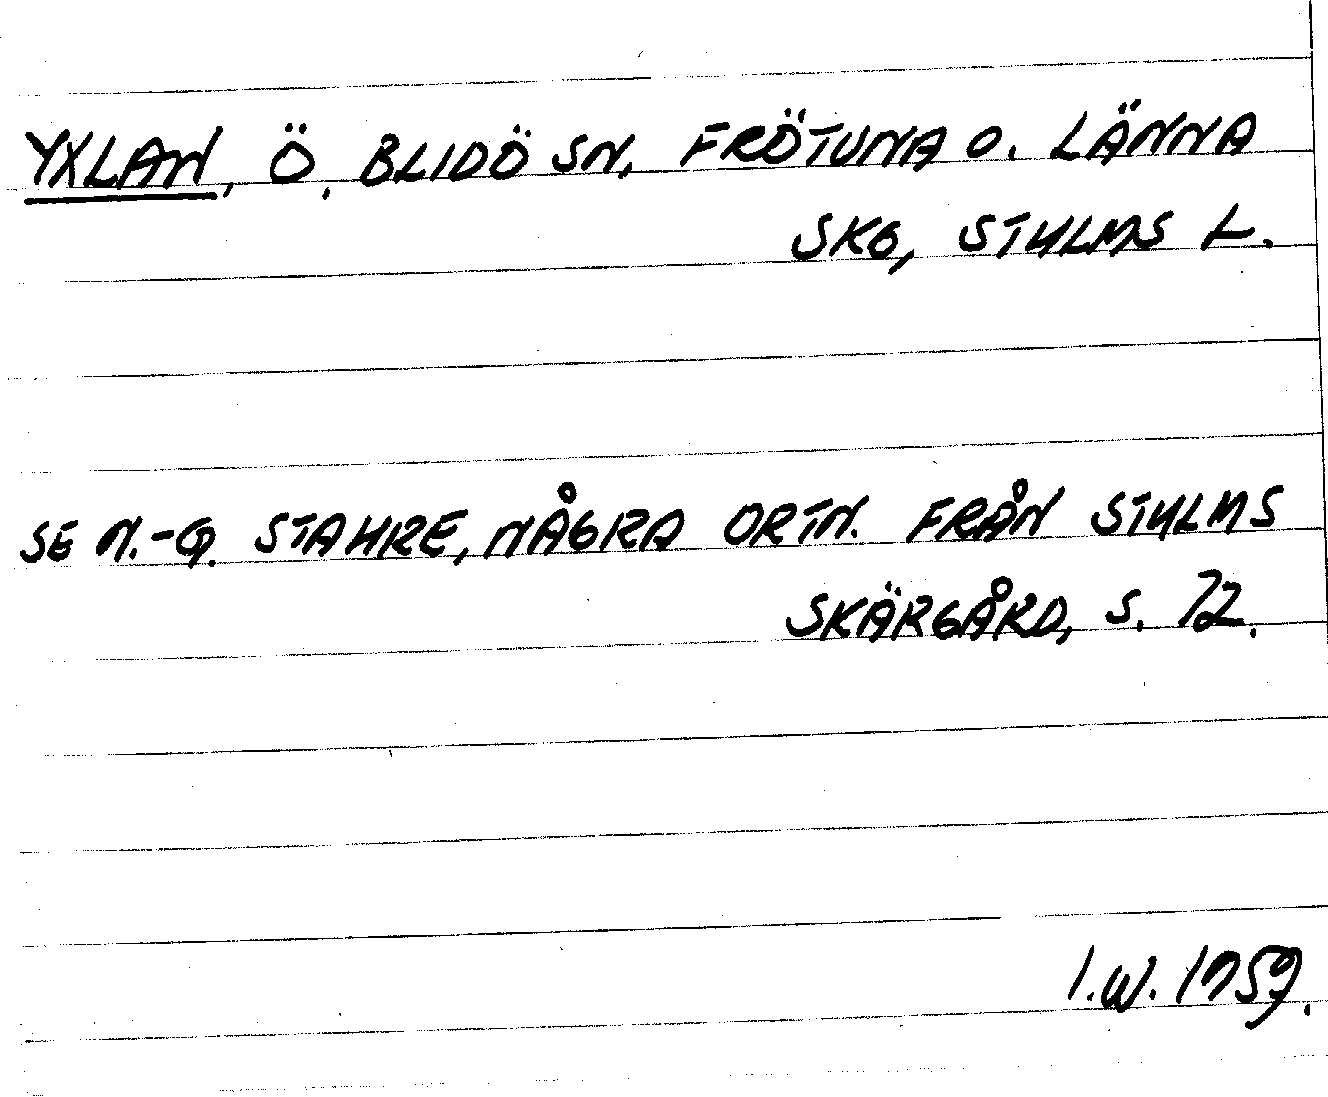 YXLAN, Ö, BLIDÖ SN, FRÖTUNA O. LÄNNA
SKG, STHLMS L.
SE N.-G. STAHRE, NÅGRA ORTN. FRÅN STHLMS
SKÄRGÅRD, S. 72.
I.W. 1959.